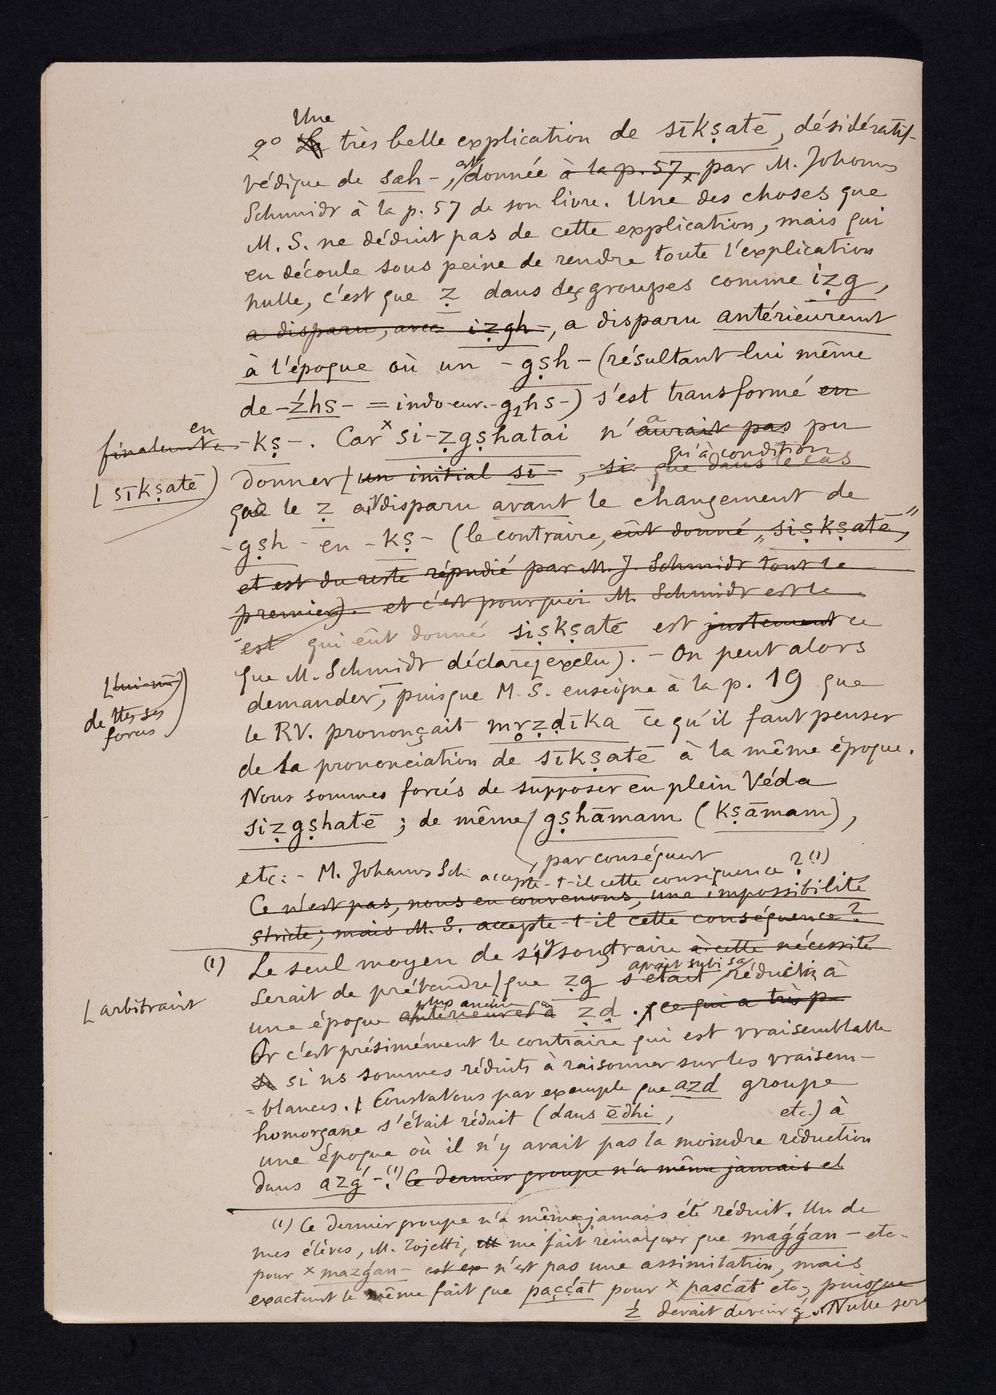 Une
2° La très belle explication de sīkṣatē, désidératif
védique de sah-, est donnée à la p. 57, par M. Johannes
Schmidt à la p. 57 de son livre. Une des choses que
M. S. ne déduit pas de cette explication, mais qui
en découle sous peine de rendre toute l'explication
nulle, c'est que ẓ dans des groupes comme iẓg,
a disparu, avec iẓgh-, a disparu antérieurement
à l'époque où un -gṣh- (résultant lui même
de -źhs- = indo-eur. -g₁hs-) s'est transformé en
finalement en -kṣ-. Car ˣsi-ẓgṣhatai n'aurait pas pu
a
qu'à condition
[sīkṣatē) donner [un initial sī-, si que dans le cas
que le ẓ ait disparu avant le changement de
-gṣh- en -kṣ- (le contraire, eût donné „siṣkṣatē,"
et est du reste répudié par M. J. Schmidt tout le
premier). et c'est pourquoi M. Schmidt est le
est qui eût donné siṣkṣatē est justement ce
que M. Schmidt déclare exclu). - On peut alors
demander, puisque M. S. enseigne à la p. 19 que
de ttes ses
forces
le RV. prononçait mr̥ẓḍīka ce qu'il faut penser
de la prononciation de sīkṣatē à la même époque.
Nous sommes forcés de supposer en plein Véda
siẓgṣhatē ; de même gṣhāmam (kṣāmam),
par conséquent
etc. - M. Johannes Sch. accepte-t-il cette conséquence ? (1)
Ce n'est pas, nous en convenons, une impossibilité
stricte; mais M. S. accepte-t-il cette conséquence ?
(1) Le seul moyen de s'y soustraire à cette nécessité
avait subi sa
serait de prétendre que ẓg s'était réduction à
[arbitrairt
plus ancienne
une époque antérieure à ẓḍ. ce qui a très p
Or c'est présisément le contraire qui est vraisemblable
si ns sommes réduits à raisonner sur les vraisem-
-blances. Constatons par exemple que azd groupe
homorgane s'était réduit (dans ēdhi, etc.) à
une époque où il n'y avait pas la moindre réduction
dans azǵ-. (1) Ce dernier groupe n'a même jamais et
(1) Ce dernier groupe n'a même jamais été réduit. Un de
mes élèves, M. Zojetti, me fait remarquer que maǵǵan- etc.
pour ˣmazǵan- est ex n'est pas une assimilation, mais
exactemt le même fait que paççāt pour ˣpasćat etc., puisque
ź devait devenir ǵ. Nulle